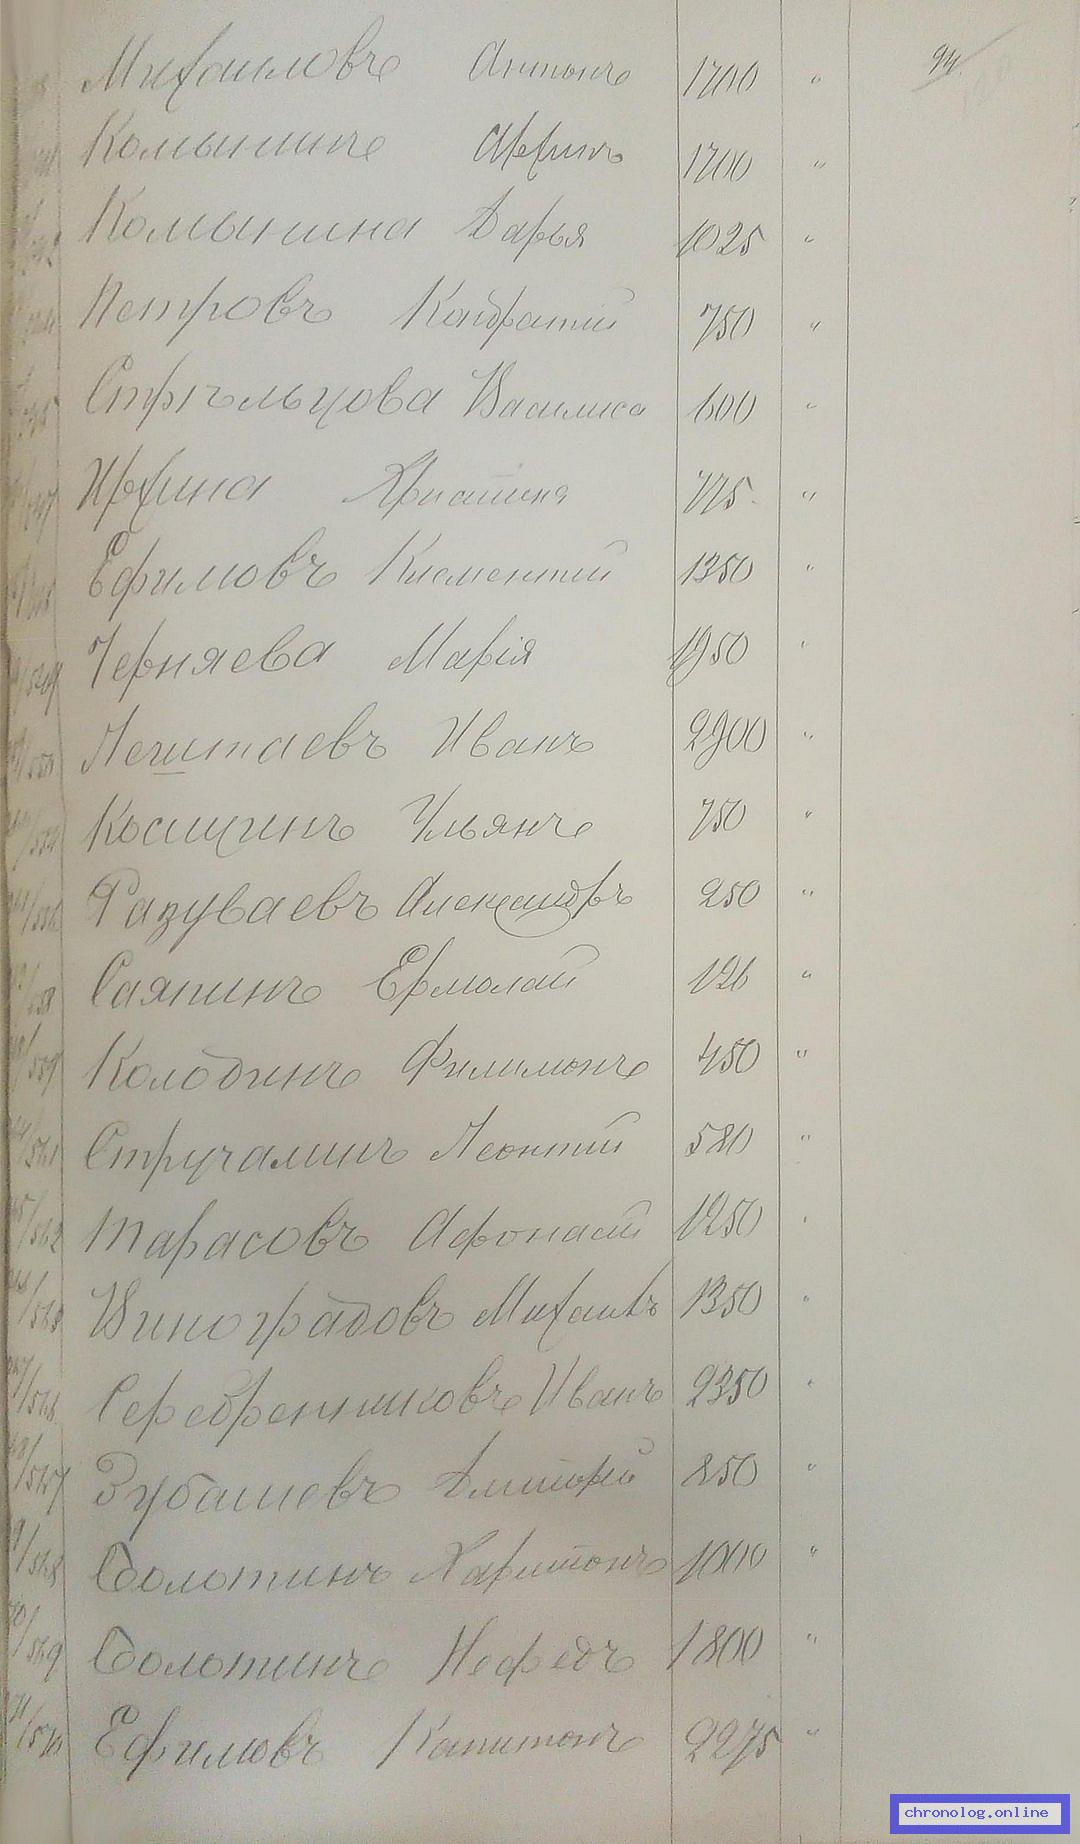 94.
Михаиловъ Антонъ 1700 "
Комынинъ 1700 "
Комынина Дарья 1025 "
Петровъ Кондратий 750 "
Стрѣльцова Василиса 600 "
775 "
Ефимовъ Клементий 1350 "
Черняева Марія 1950 "
Иванъ 2900 "
Косицинъ Ульянъ 750 "
Разуваевъ Александръ 250 "
Саяпинъ Ермолай 126 "
Колодинъ Филимонъ 450 "
Стручалинъ Леонтий 580 "
Тарасовъ Афонасий 1250 "
Виноградовъ Михаилъ 1350 "
Серебренниковъ Иванъ 2350 "
Зубашевъ Дмитрий 850 "
Болотинъ Харитонъ 1000 "
Болотинъ Нефедъ 1800 "
Ефимовъ Капитонъ 2275 "
chronolog.online